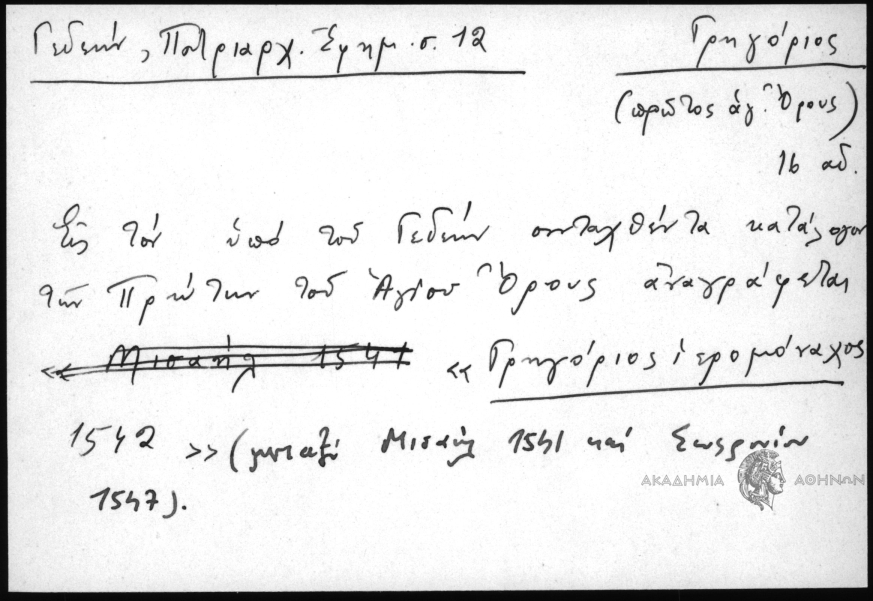 Γεδεών, Πατριαρχ. Ἐφημ. σ. 12
Γρηγόριος
(πρῶτος ἁγ. Ὄρους)
16 αἰ.
Εἰς τόν ὑπό τοῦ Γεδεών συνταχθέντα κατάλογον
τῶν Πρώτων τοῦ Ἁγίου Ὄρους ἀναγράφεται
<< Μισαήλ 1541 << Γρηγόριος ἱερομόναχος
1542 >> (μεταξύ Μισαήλ 1541 καί Σωφρονίου
1547).
ΑΚΑΔΗΜΙΑ ΑΘΗΝΩΝ